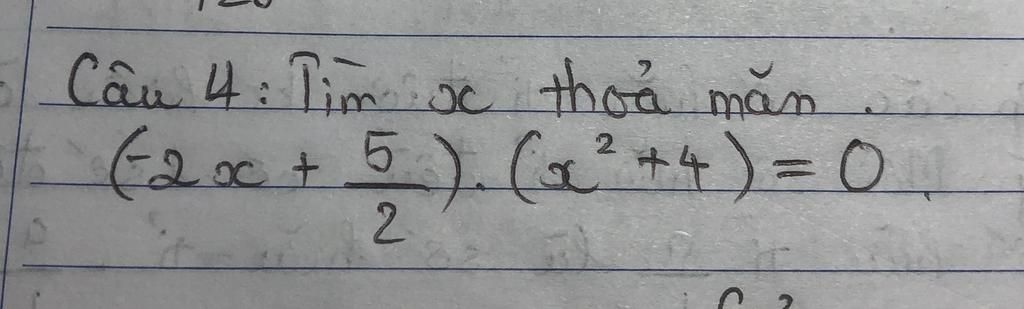 Câu 4: Tìm x thoả mãn.
(-2x + 5/2).(x² + 4) = 0.